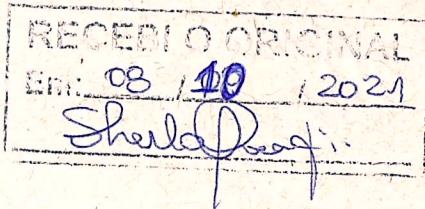 RECEBI O ORIGINAL
Em: 08 / 10 / 2021